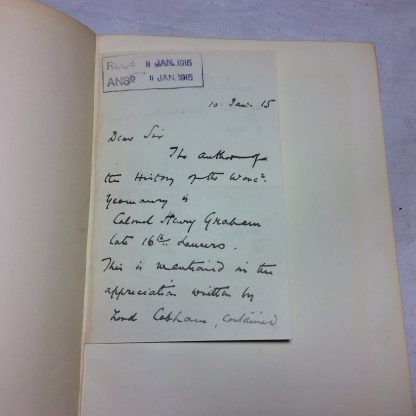 RECD 11 JAN. 1915
ANSD 11 JAN. 1915
10. Jan. 15
Dear Sir
The author of
the History of the Worcr.
Yeomanry is
Colonel Harry Graham
late 16th. Lancers.
This is mentioned in the
appreciation written by
Lord Cobham, contained